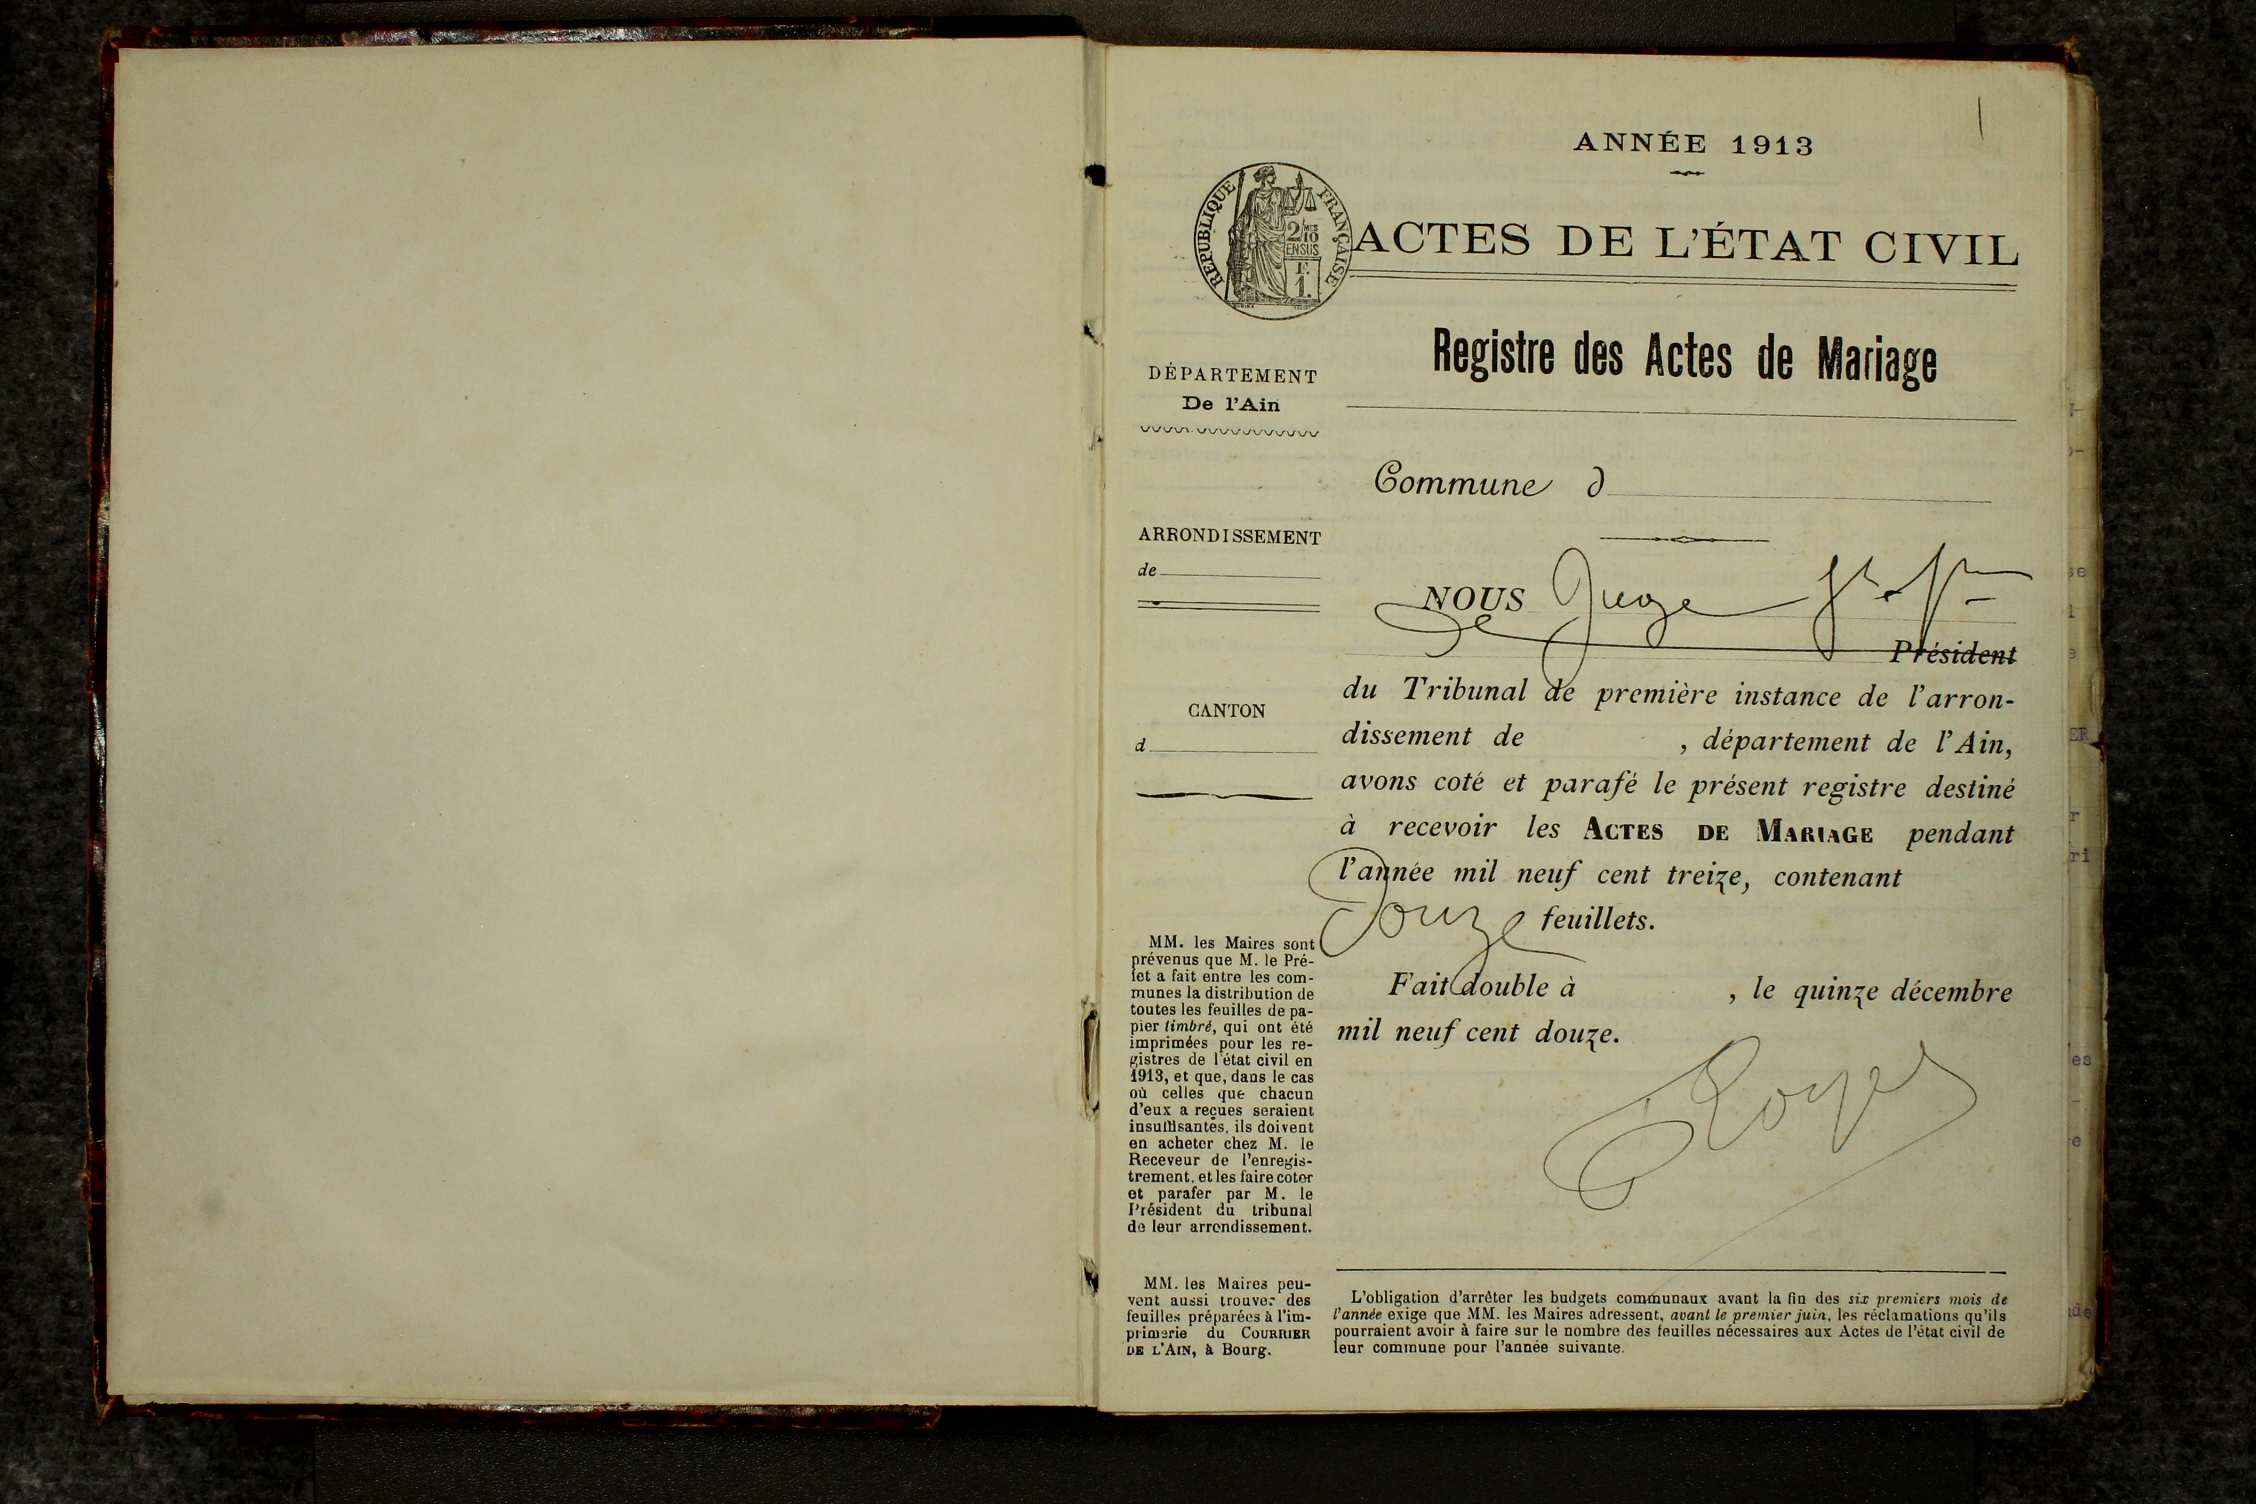 1
ANNÉE 1913
RÉPUBLIQUE FRANÇAISE
2/10 MES
EN SUS
F.
1.
ACTES DE L'ÉTAT CIVIL
Registre des Actes de Mariage
DÉPARTEMENT
De l'Ain
Commune d
ARRONDISSEMENT
de
NOUS Juge
Président
CANTON
d
du Tribunal de première instance de l'arron-
dissement de , département de l'Ain,
avons coté et parafé le présent registre destiné
à recevoir les ACTES DE MARIAGE pendant
l'année mil neuf cent treize, contenant
Douze feuillets.
Fait double à , le quinze décembre
mil neuf cent douze.
MM. les Maires sont
prévenus que M. le Pré-
fet a fait entre les com-
munes la distribution de
toutes les feuilles de pa-
pier timbré, qui ont été
imprimées pour les re-
gistres de l'état civil en
1913, et que, dans le cas
où celles que chacun
d'eux a reçues seraient
insuffisantes, ils doivent
en acheter chez M. le
Receveur de l'enregis-
trement, et les faire coter
et parafer par M. le
Président du tribunal
de leur arrondissement.
MM. les Maires peu-
vent aussi trouver des
feuilles préparées à l'im-
primerie du COURRIER
DE L'AIN, à Bourg.
L'obligation d'arrêter les budgets communaux avant la fin des six premiers mois de
l'année exige que MM. les Maires adressent, avant le premier juin, les réclamations qu'ils
pourraient avoir à faire sur le nombre des feuilles nécessaires aux Actes de l'état civil de
leur commune pour l'année suivante.